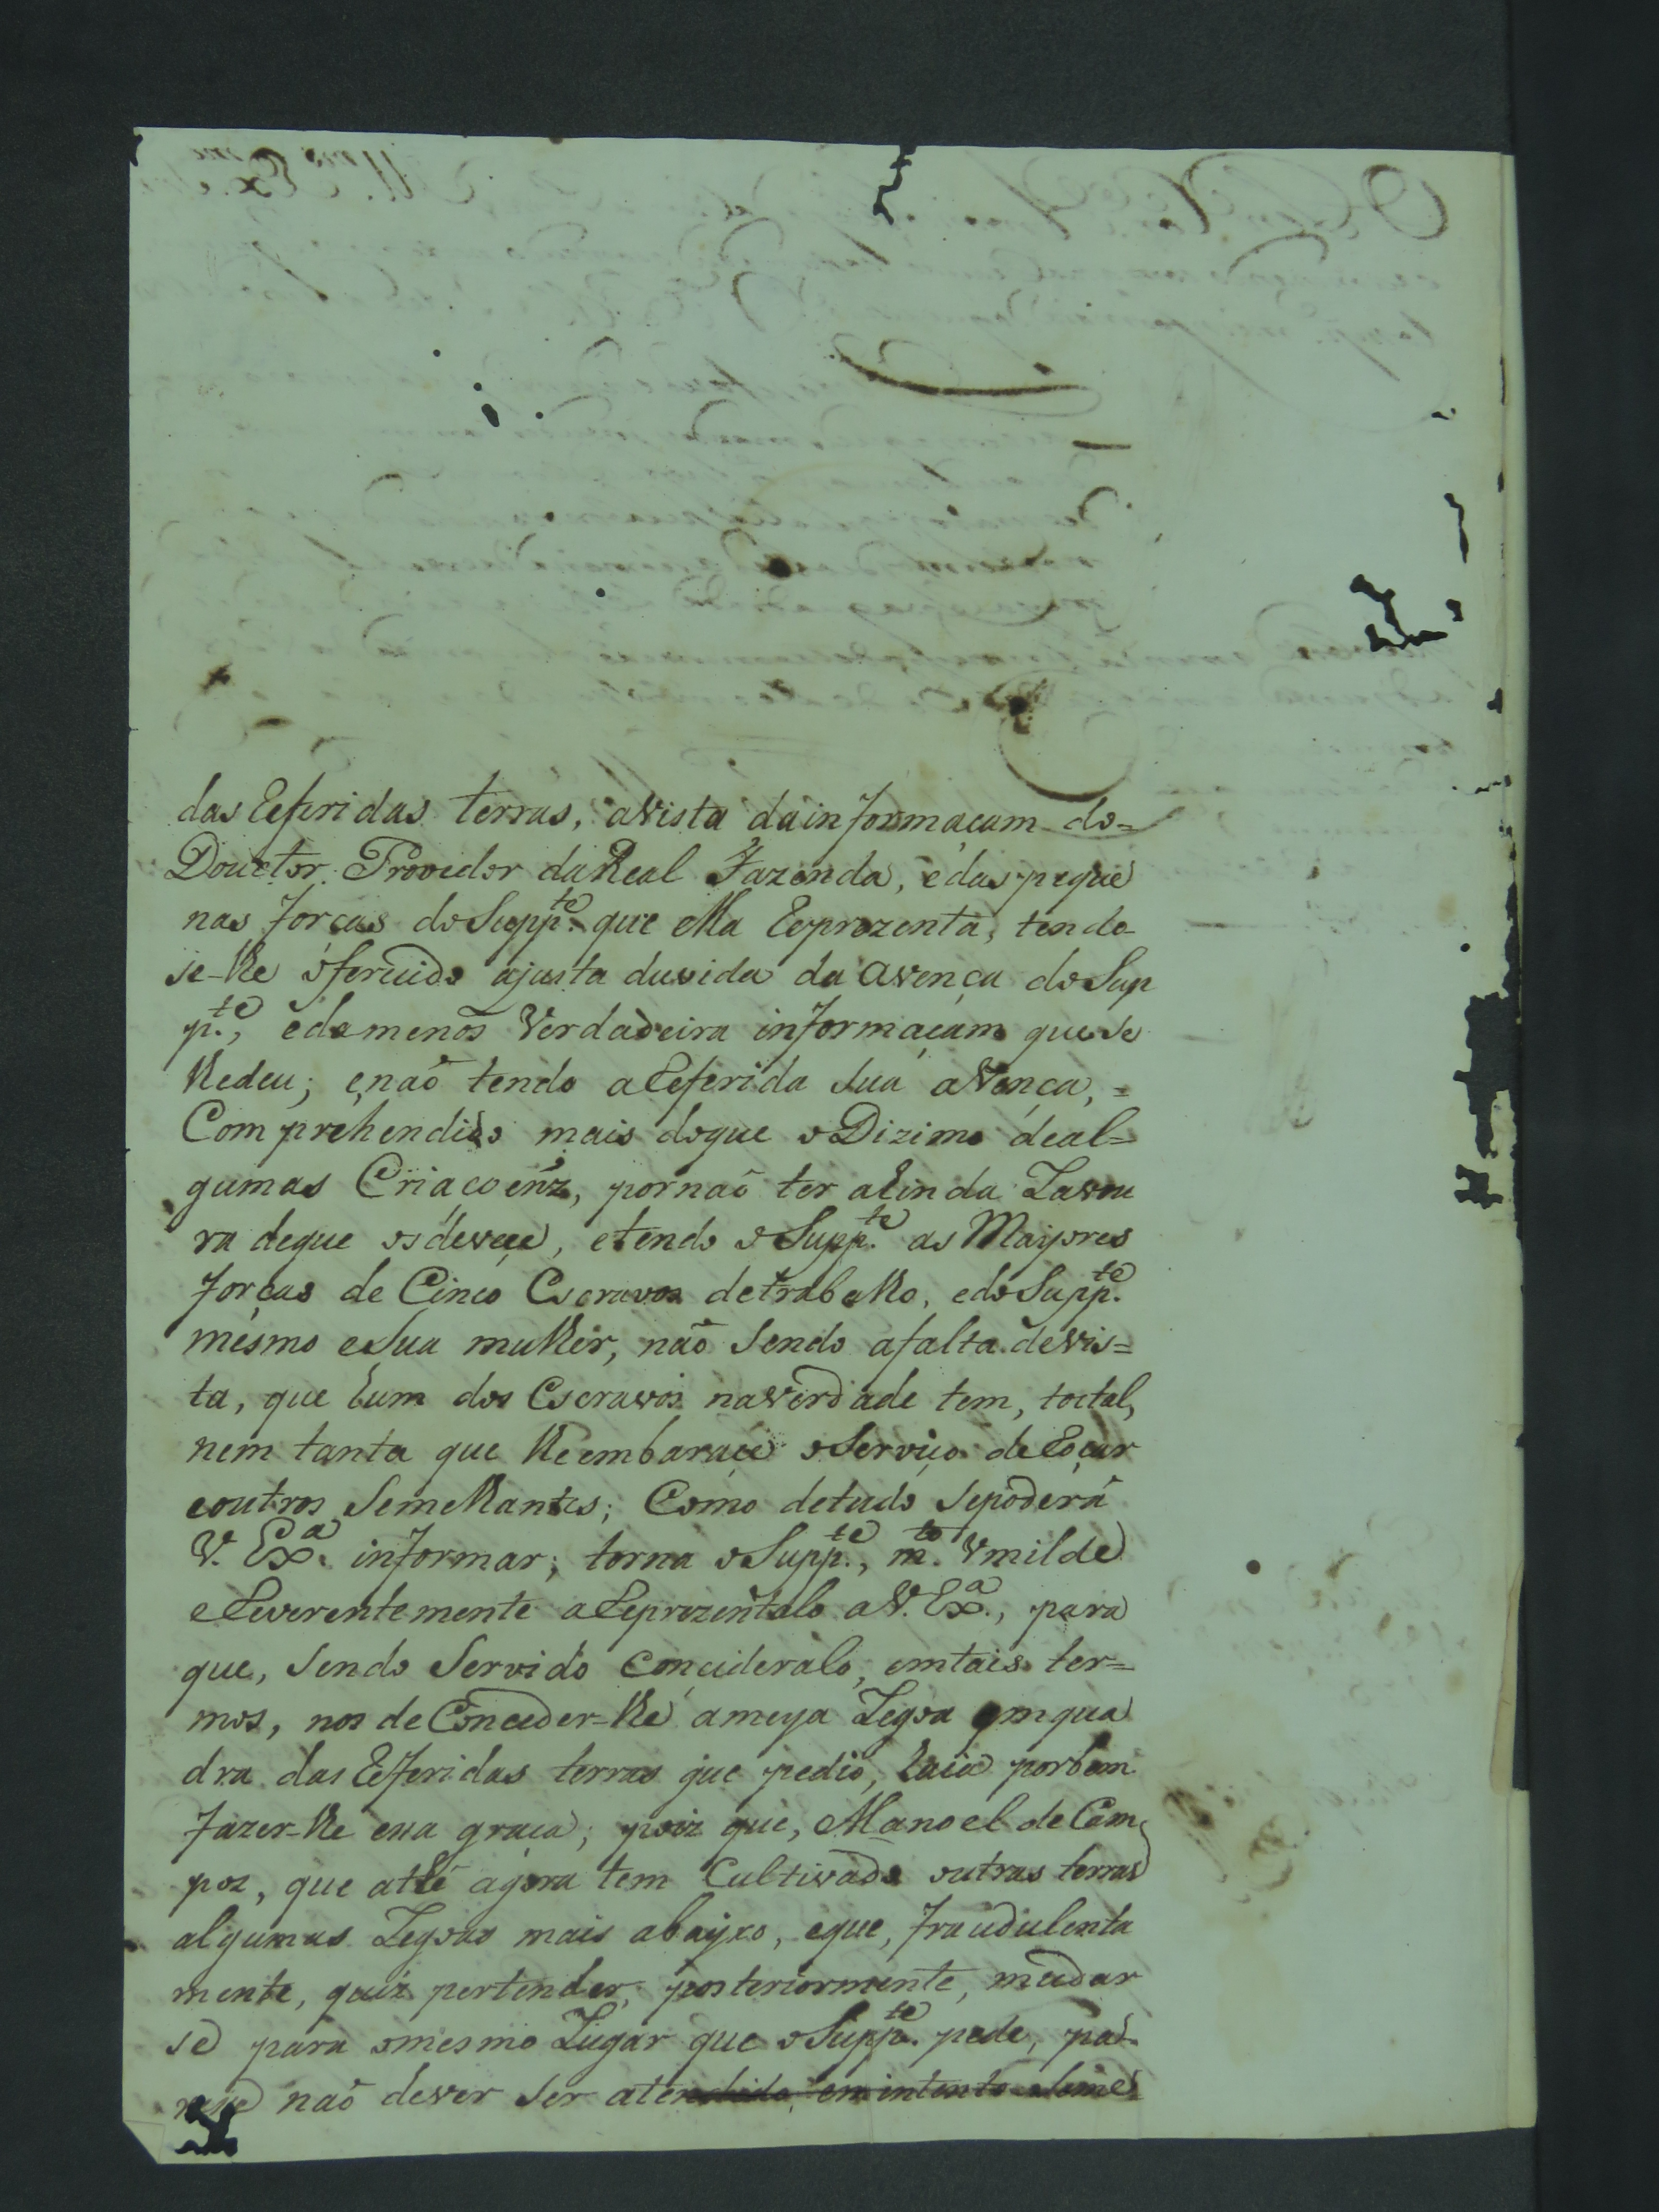 das Referidas terras, avista dainformaçam do=
Douctor Provedor daReal Fazenda, edas peque
nas forças doSuppte. que ella Reprezenta, tendo-
se-lhe oferecido ajusta duvida da avença doSup
pte., edamenos Verdadeira informaçam quese
lhedeu; enaõ tendo aReferida sua avença,=
Comprehendido mais doque oDizimo deal=
gumas Criaçoẽnz, pornaõ ter ahinda Lavou
ra deque osdevece, etendo oSuppte. as Mayores
forças de Cinco Escravos detrabalho, edoSuppte.
mesmo esua mulher, naõ sendo afalta devis=
ta, que hum dos Escravos naverdade tem, toctal,
nem tanta que lheembarace oServiço deRoçar
eoutros Semelhantes; Como detudo sepoderá
V. Exa. informar; torna oSuppte., mto. Vmilde
eReverentemente aReprezentalo aV. Exa., para
que, sendo Servido Concideralo, emtais ter=
mos, nos deConceder=lhe ameya Legoa emqua
dra das Referidas terras que pedio, haia porbem
fazer-lhe essa graça; poiz que, Manoel deCam
poz, que athé agora tem Cultivado outras terras
algumas Legoas mais abayxo, eque, fraudulenta
mente, quiz pertender, posteriormente, mudar
se para omesmo Lugar que oSuppte. pede, pa-
rece naõ dever ser atendido, emintento seme